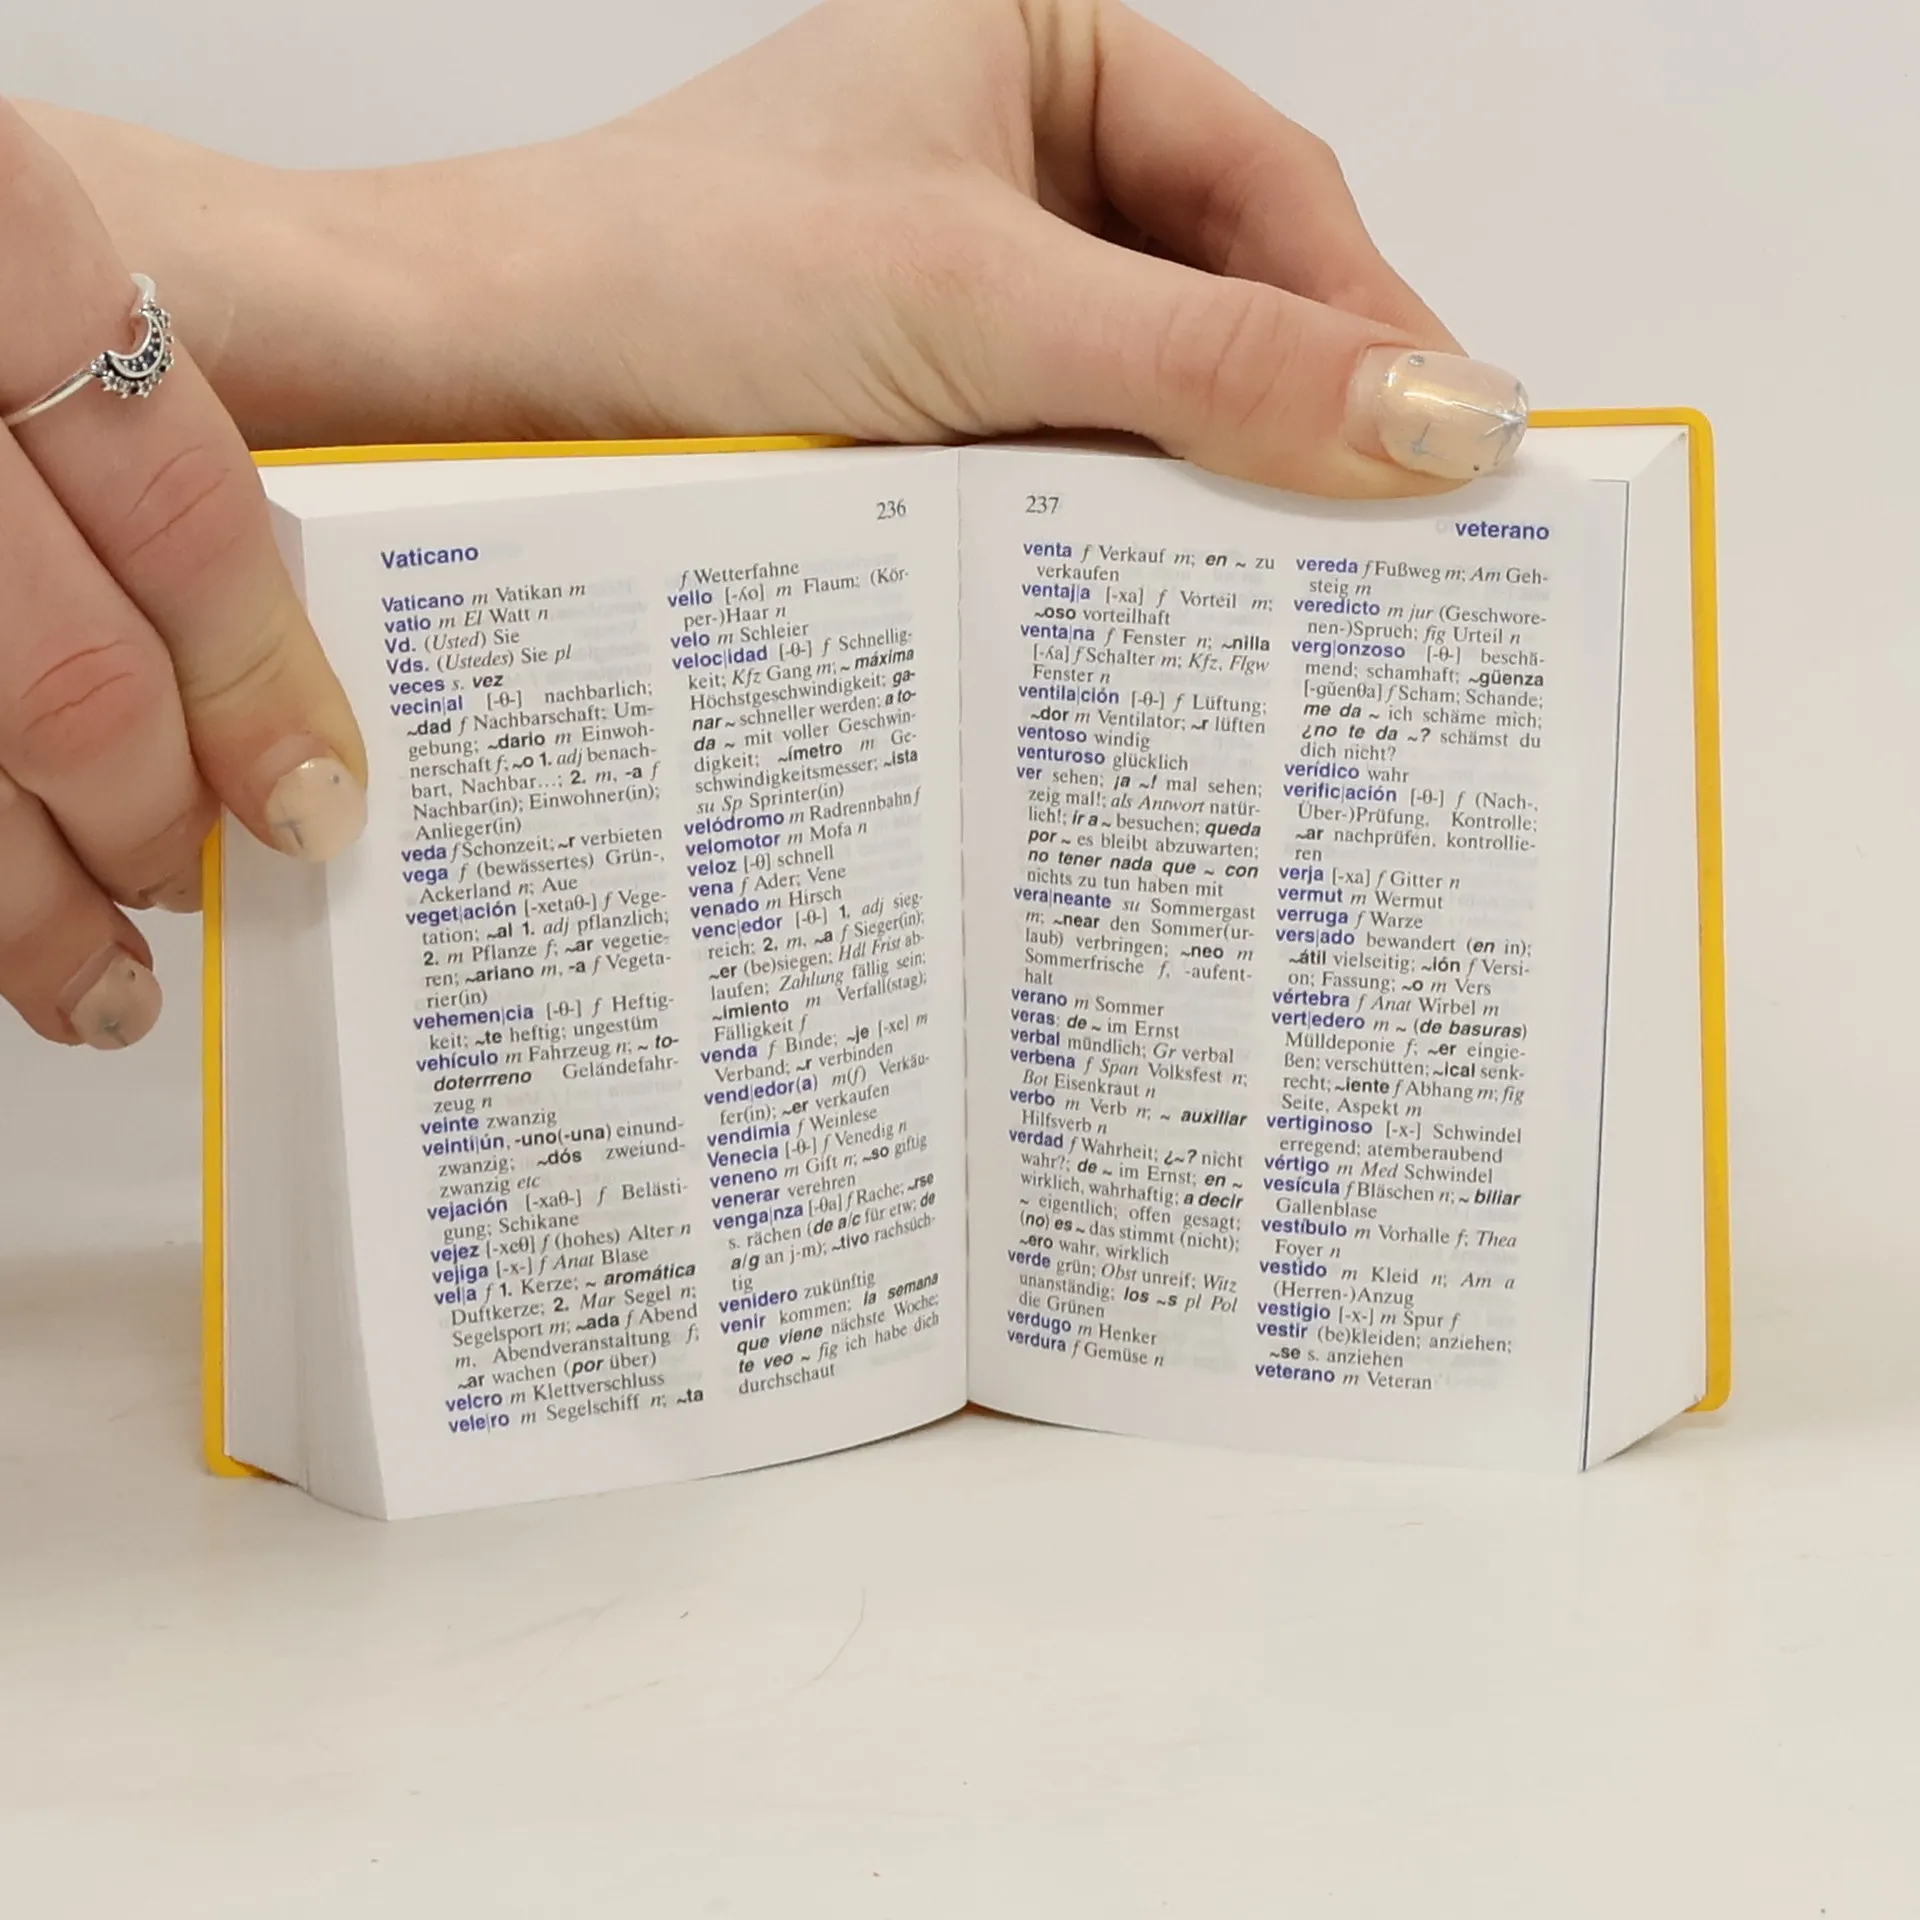 236
Vaticano
Vaticano m Vatikan m
vatio m El Watt n
Vd. (Usted) Sie
Vds. (Ustedes) Sie pl
veces s. vez
vecin|al [-θ-] nachbarlich;
~dad f Nachbarschaft; Um-
gebung; ~dario m Einwoh-
nerschaft f; ~o 1. adj benach-
bart, Nachbar…; 2. m, -a f
Nachbar(in); Einwohner(in);
Anlieger(in)
veda f Schonzeit; ~r verbieten
vega f (bewässertes) Grün-,
Ackerland n; Aue
veget|ación [-xetaθ-] f Vege-
tation; ~al 1. adj pflanzlich;
2. m Pflanze f; ~ar vegetie-
ren; ~ariano m, -a f Vegeta-
rier(in)
vehemen|cia [-θ-] f Heftig-
keit; ~te heftig; ungestüm
vehículo m Fahrzeug n; ~ to-
doterrreno Geländefahr-
zeug n
veinte zwanzig
veinti|ún, -uno(-una) einund-
zwanzig; ~dós zweiund-
zwanzig etc
vejación [-xaθ-] f Belästi-
gung; Schikane
vejez [-xeθ] f (hohes) Alter n
vejiga [-x-] f Anat Blase
vel|a f 1. Kerze; ~ aromática
Duftkerze; 2. Mar Segel n;
Segelsport m; ~ada f Abend
m, Abendveranstaltung f;
~ar wachen (por über)
velcro m Klettverschluss
vele|ro m Segelschiff n; ~ta
f Wetterfahne
vello [-ʎo] m Flaum; (Kör-
per-)Haar n
velo m Schleier
veloc|idad [-θ-] f Schnellig-
keit; Kfz Gang m; ~ máxima
Höchstgeschwindigkeit; ga-
nar ~ schneller werden; a to-
da ~ mit voller Geschwin-
digkeit; ~ímetro m Ge-
schwindigkeitsmesser; ~ista
su Sp Sprinter(in)
velódromo m Radrennbahn f
velomotor m Mofa n
veloz [-θ] schnell
vena f Ader; Vene
venado m Hirsch
venc|edor [-θ-] 1. adj sieg-
reich; 2. m, ~a f Sieger(in);
~er (be)siegen; Hdl Frist ab-
laufen; Zahlung fällig sein;
~imiento m Verfall(stag);
Fälligkeit f
venda f Binde; ~je [-xe] m
Verband; ~r verbinden
vend|edor(a) m(f) Verkäu-
fer(in); ~er verkaufen
vendimia f Weinlese
Venecia [-θ-] f Venedig n
veneno m Gift n; ~so giftig
venerar verehren
venga|nza [-θa] f Rache; ~rse
s. rächen (de a/c für etw; de
a/g an j-m); ~tivo rachsüch-
tig
venidero zukünftig
venir kommen; la semana
que viene nächste Woche;
te veo ~ fig ich habe dich
durchschaut
237
veterano
venta f Verkauf m; en ~ zu
verkaufen
ventaj|a [-xa] f Vorteil m;
~oso vorteilhaft
venta|na f Fenster n; ~nilla
[-ʎa] f Schalter m; Kfz, Flgw
Fenster n
ventila|ción [-θ-] f Lüftung;
~dor m Ventilator; ~r lüften
ventoso windig
venturoso glücklich
ver sehen; ¡a ~! mal sehen;
zeig mal!; als Antwort natür-
lich!; ir a ~ besuchen; queda
por ~ es bleibt abzuwarten;
no tener nada que ~ con
nichts zu tun haben mit
vera|neante su Sommergast
m; ~near den Sommer(ur-
laub) verbringen; ~neo m
Sommerfrische f, -aufent-
halt
verano m Sommer
veras: de ~ im Ernst
verbal mündlich; Gr verbal
verbena f Span Volksfest n;
Bot Eisenkraut n
verbo m Verb n; ~ auxiliar
Hilfsverb n
verdad f Wahrheit; ¿~? nicht
wahr?; de ~ im Ernst; en ~
wirklich, wahrhaftig; a decir
~ eigentlich; offen gesagt;
(no) es ~ das stimmt (nicht);
~ero wahr, wirklich
verde grün; Obst unreif; Witz
unanständig; los ~s pl Pol
die Grünen
verdugo m Henker
verdura f Gemüse n
vereda f Fußweg m; Am Geh-
steig m
veredicto m jur (Geschwore-
nen-)Spruch; fig Urteil n
verg|onzoso [-θ-] beschä-
mend; schamhaft; ~güenza
[-gŭenθa] f Scham; Schande;
me da ~ ich schäme mich;
¿no te da ~? schämst du
dich nicht?
verídico wahr
verific|ación [-θ-] f (Nach-,
Über-)Prüfung, Kontrolle;
~ar nachprüfen, kontrollie-
ren
verja [-xa] f Gitter n
vermut m Wermut
verruga f Warze
vers|ado bewandert (en in);
~átil vielseitig; ~ión f Versi-
on; Fassung; ~o m Vers
vértebra f Anat Wirbel m
vert|edero m ~ (de basuras)
Mülldeponie f; ~er eingie-
ßen; verschütten; ~ical senk-
recht; ~iente f Abhang m; fig
Seite, Aspekt m
vertiginoso [-x-] Schwindel
erregend; atemberaubend
vértigo m Med Schwindel
vesícula f Bläschen n; ~ biliar
Gallenblase
vestíbulo m Vorhalle f; Thea
Foyer n
vestido m Kleid n; Am a
(Herren-)Anzug
vestigio [-x-] m Spur f
vestir (be)kleiden; anziehen;
~se s. anziehen
veterano m Veteran